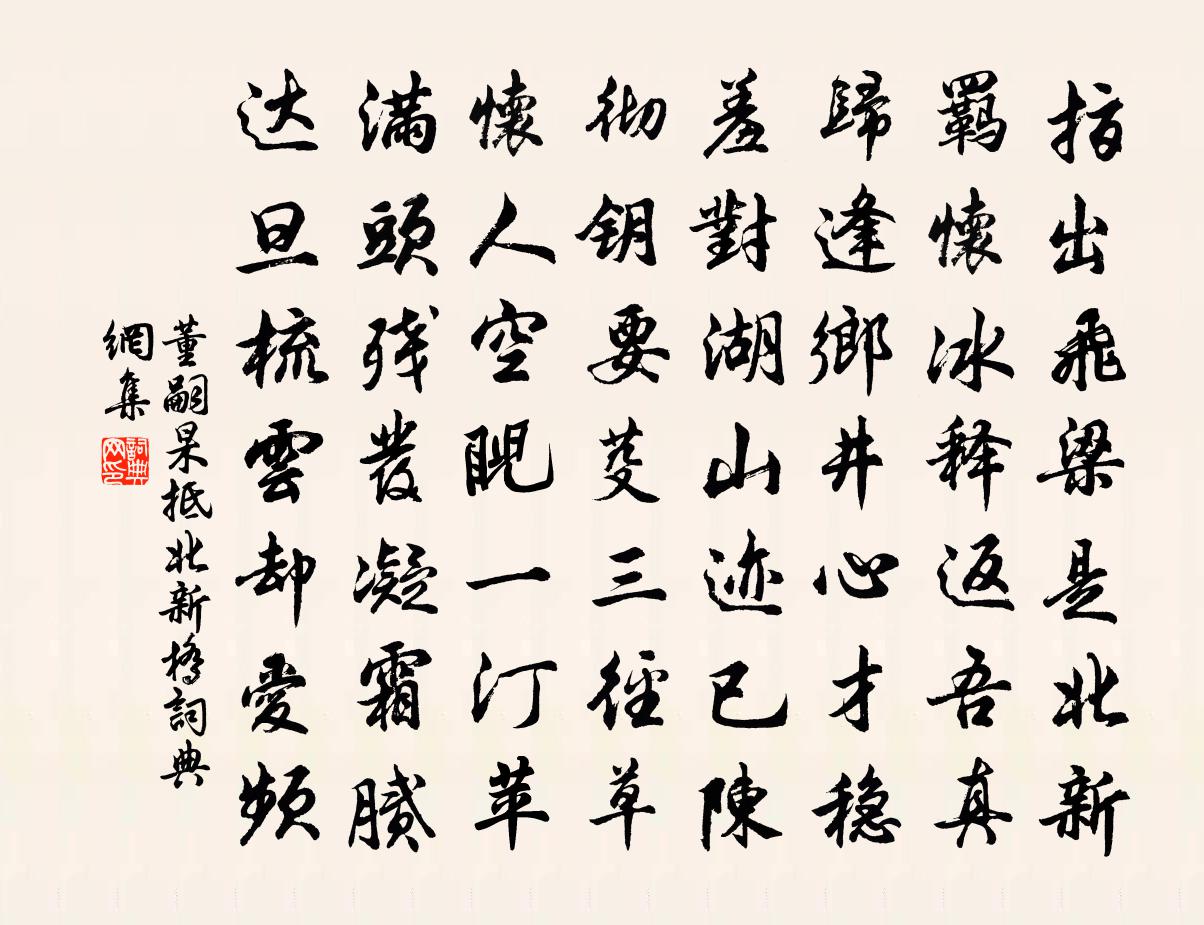 指出飛梁是北新
羈懷冰释返吾真
歸逢鄉井心才稳
羞對湖山迹已陳
彻钥要芟三徑草
懷人空睨一汀苹
满頭残發凝霜膩
达旦梳雲却愛频
董嗣杲抵北新橋詞典
網集
詞典
网印